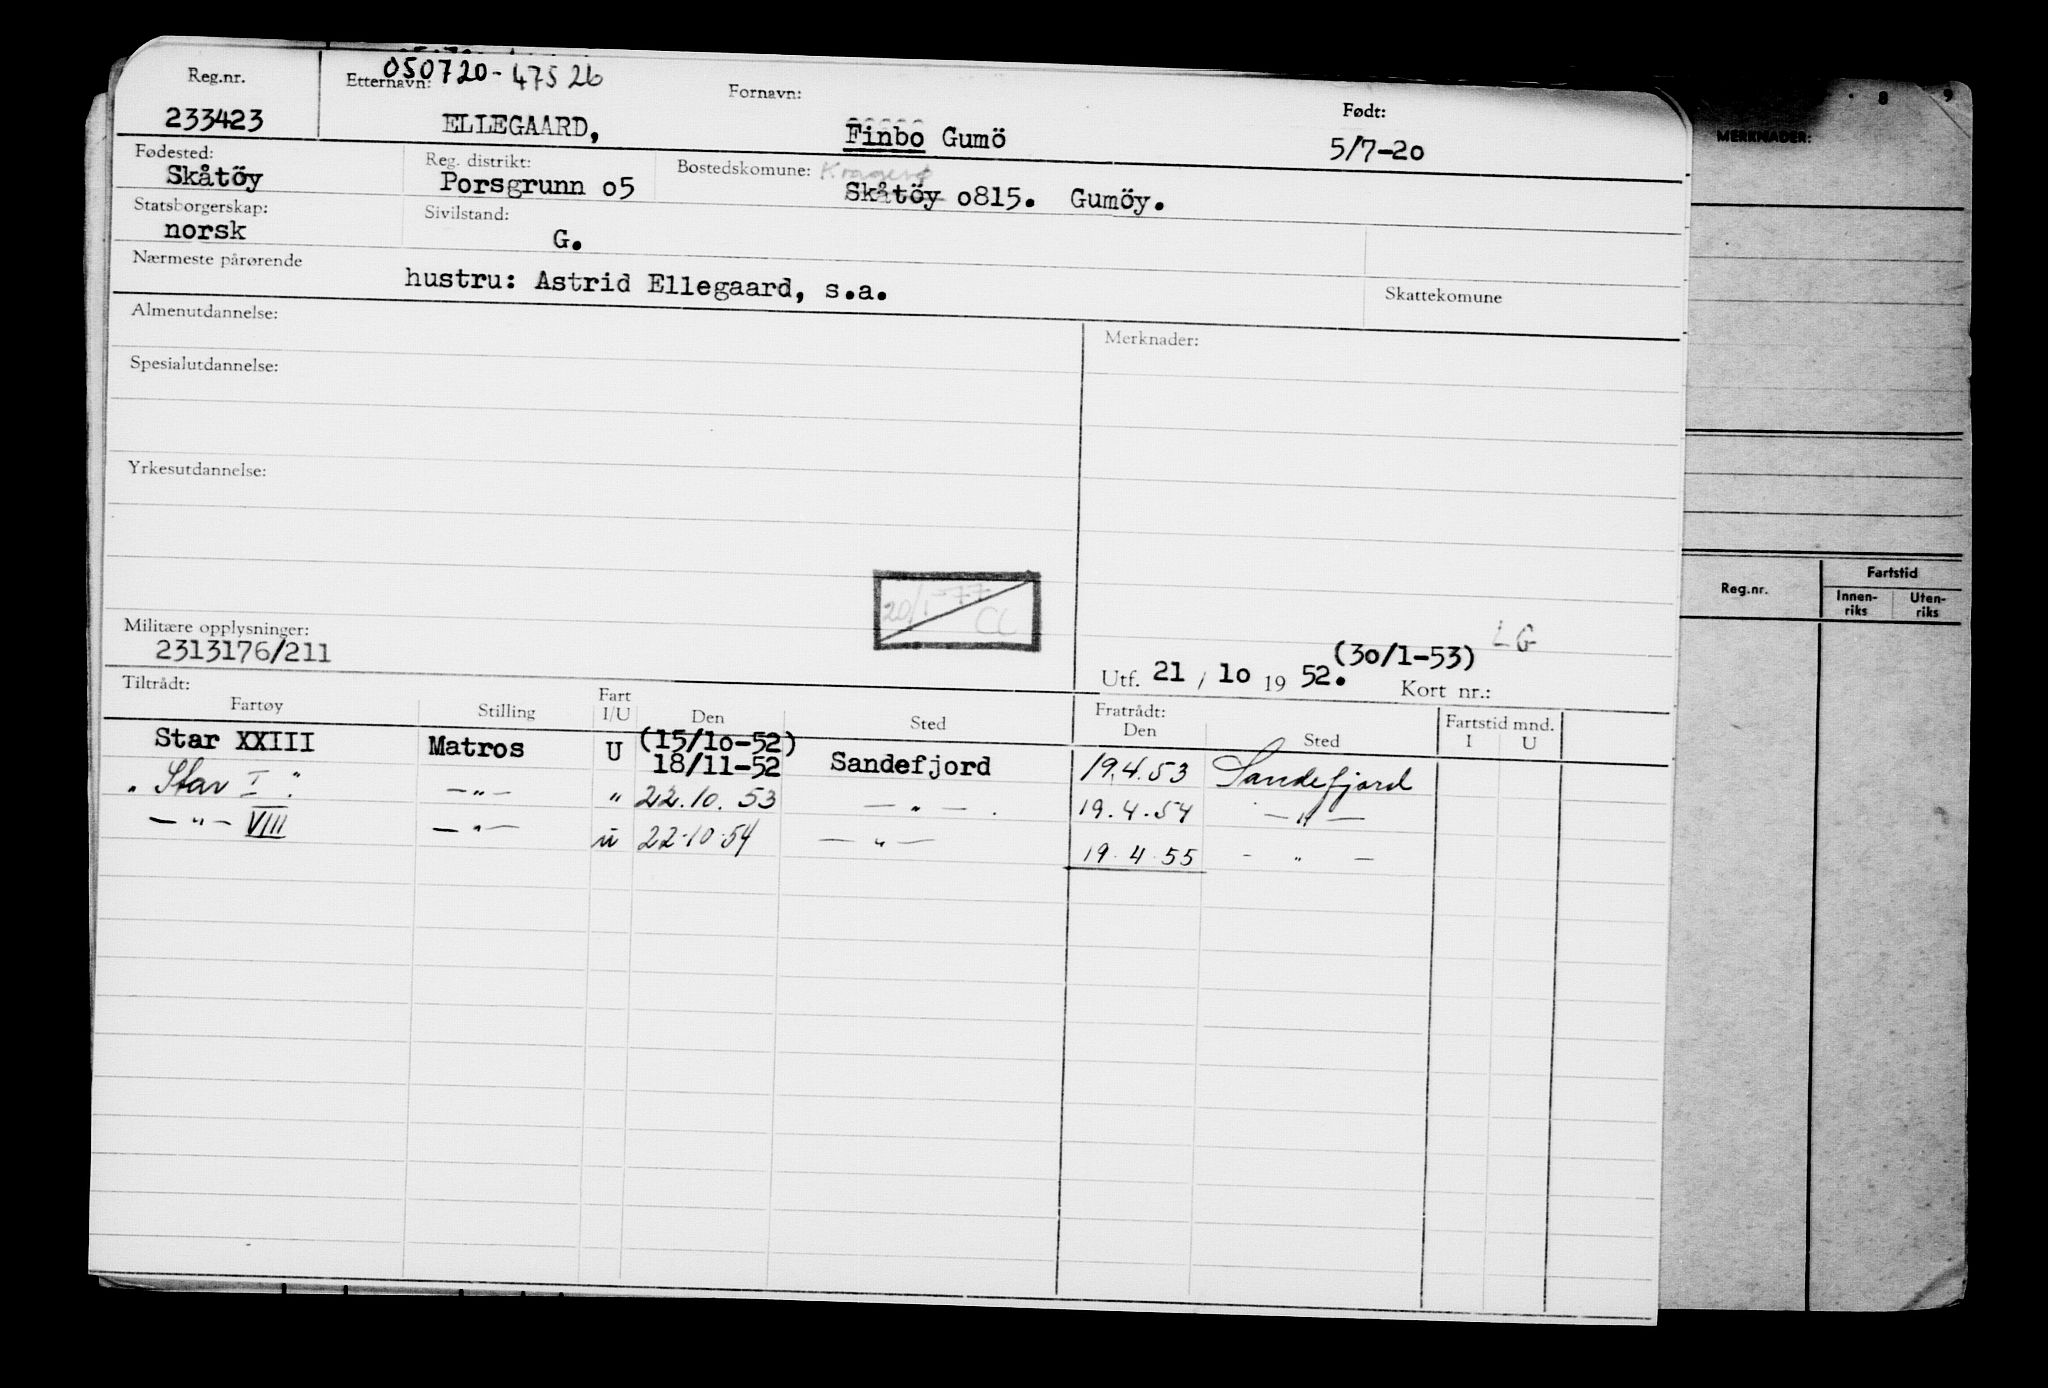 050720-47526
Reg.nr. Etternavn: Fornavn: Født:
233423 ELLEGAARD, Finbo Gumö 5/7-20
Fødested: Reg. distrikt: Bostedskomune: Kragerø
Skåtöy Porsgrunn o5 Skåtöy o815. Gumöy.
Statsborgerskap: Sivilstand:
norsk G.
Nærmeste pårørende
hustru: Astrid Ellegaard, s.a. Skattekomune
Almenutdannelse: Merknader:
Spesialutdannelse:
Yrkesutdannelse:
20/1-77 CC
Militære opplysninger:
2313176/211
LG
Utf. 21 / 10 19 52. (30/1-53) Kort nr.:
Tiltrådt: Fratrådt: Fartstid mnd.
Fartøy Stilling Fart I/U Den Sted Den Sted I U
Star XXIII Matros U (15/10-52) 18/11-52 Sandefjord 19.4.53 Sandefjord
" Star I " —"— " 22.10.53 —"— . 19.4.54 —"—
—"— VIII —"— u 22.10.54 —"— 19.4.55 - " —
8 9
MERKNADER:
Reg.nr. Fartstid
Innen-riks Uten-riks